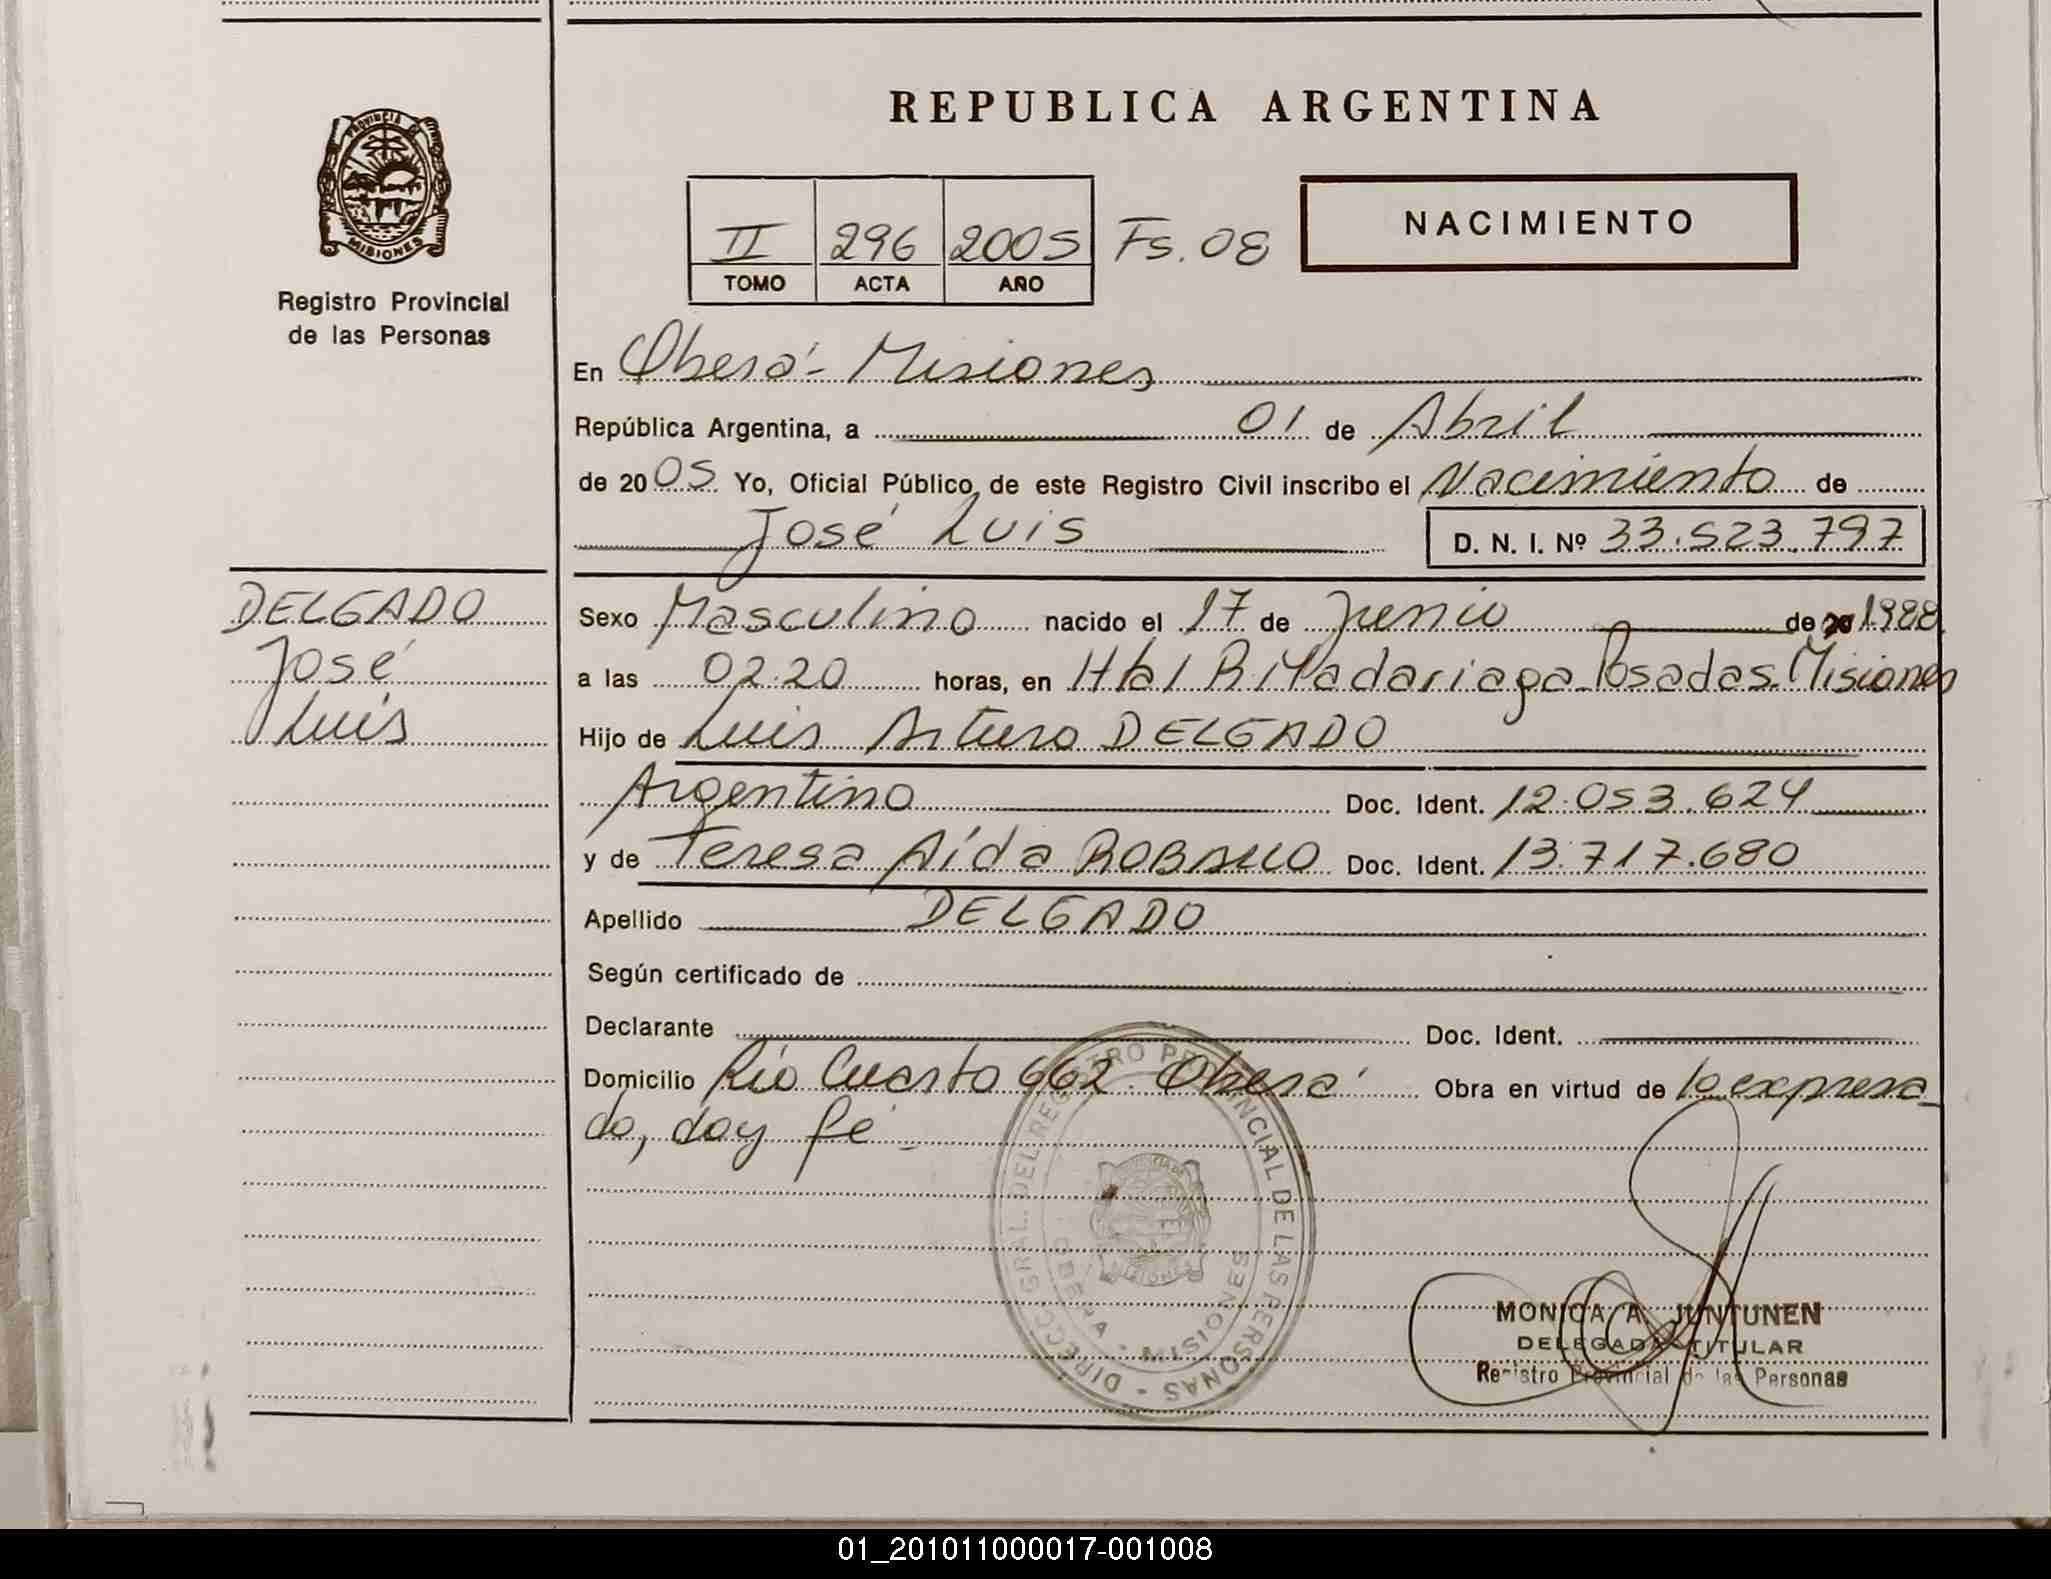 REPUBLICA ARGENTINA
PROVINCIA DE
MISIONES
Registro Provincial
de las Personas
II 296 2005 Fs. 08
TOMO ACTA AÑO
NACIMIENTO
En Oberá - Misiones
República Argentina, a 01 de Abril
de 2005 Yo, Oficial Público de este Registro Civil inscribo el Nacimiento de
José Luis D. N. I. Nº 33.523.797
DELGADO
José
Luis
Sexo Masculino nacido el 17 de Junio de 20 1988
a las 02.20 horas, en Htal R. Madariaga Posadas. Misiones
Hijo de Luis Arturo DELGADO
Argentino Doc. Ident. 12.053.624
y de Teresa Aída Doc. Ident. 13.717.680
Apellido DELGADO
Según certificado de
Declarante Doc. Ident.
Domicilio Río Cuarto 662. Oberá Obra en virtud de lo expresa
do, doy fé
DIRECC. GRAL. DEL REGISTRO PROVINCIAL DE LAS PERSONAS
OBERA - MISIONES
MONICA A. JUNTUNEN
DELEGADA TITULAR
Registro Provincial de las Personas
01_201011000017-001008